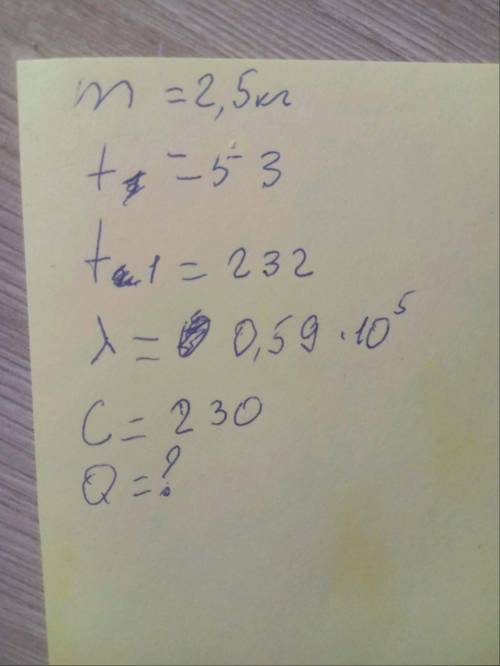 m = 2,5 кг
t = 53
t 1 = 232
λ = 0,59 · 10⁵
C = 230
Q = ?